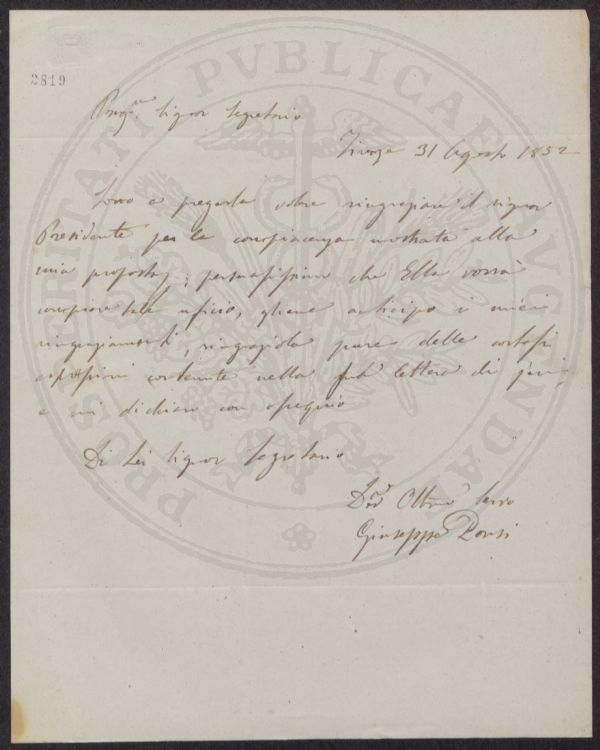 2819
PROSPERITATI PVBLICAE AVGENDAE
Preg.mo Signor Segretario
Firenze 31 Agosto 1852
Sono a pregarla volere ringraziare il Signor
Presidente per la compiacenza mostrata alla
mia proposta; persuasissimo che Ella vorrà
compiere tale uficio, gliene anticipo i miei
ringraziamenti, ringraziola pure delle cortesi
espressioni contenute nella sua lettera di jeri,
e mi dichiaro con ossequio
Di Lei Signor Segretario
Servo
Giuseppe Ponsi